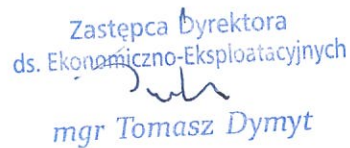 Zastępca Dyrektora
ds. Ekonomiczno-Eksploatacyjnych
mgr Tomasz Dymyt